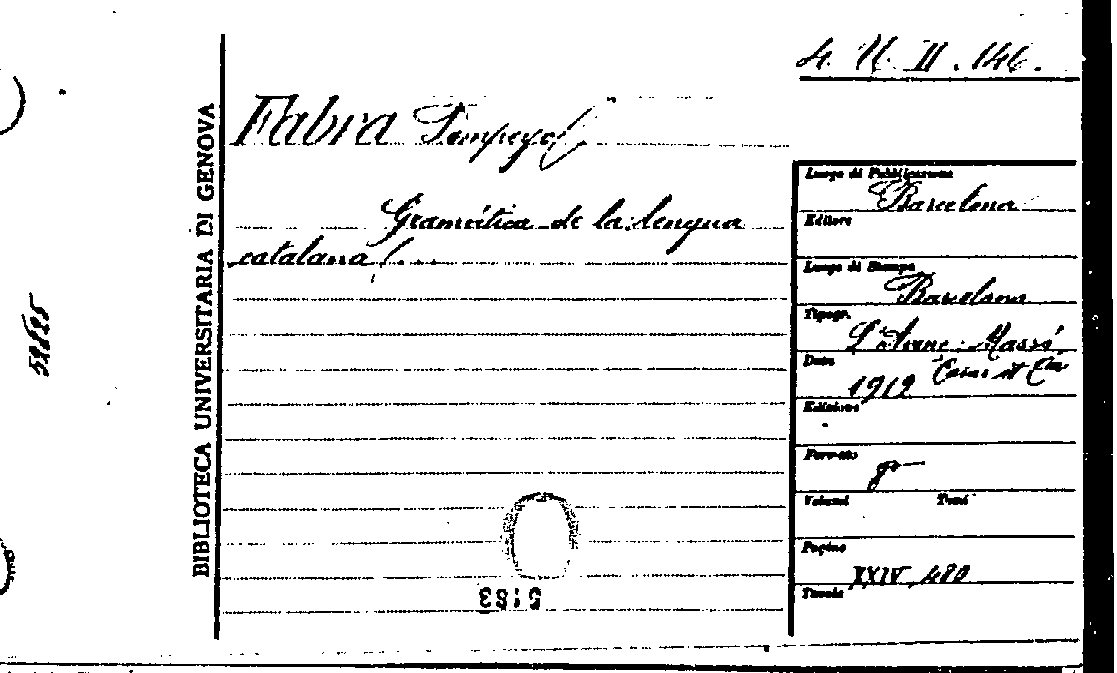 4. U. II. 146.
BIBLIOTECA UNIVERSITARIA DI GENOVA
Fabra Pompeyo
Gramática de la lengua
catalana
Luogo di Pubblicazione
Barcelona
Editore
Luogo di Stampa
Barcelona
Tipogr.
L'Avenç: Massó,
Casas et Cia
Data
1912
Edizione
Formato
8°
Volumi Tomi
Pagine
XXIV, 480
Tavole
5183